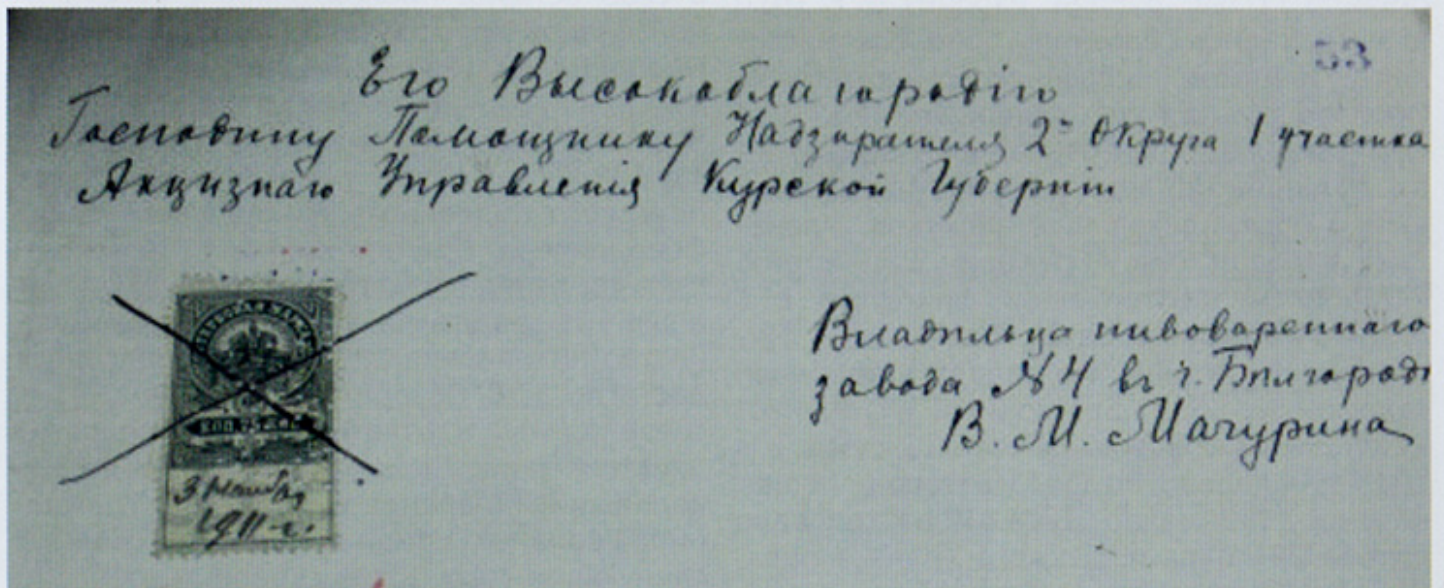 53
Его Высокоблагородію
Господину Помощнику Надзирателя 2го Округа 1 участка
Акцизнаго Управленія Курской Губерніи
Владѣльца пивовареннаго
завода №4 въ г. Бѣлгородѣ
В. М. Мачурина
ГЕРБОВАЯ МАРКА
КОП. 75 КОП.
3 Ноября
1911 г.